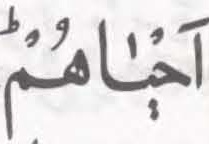 اَحْيٰاهُمْؕ